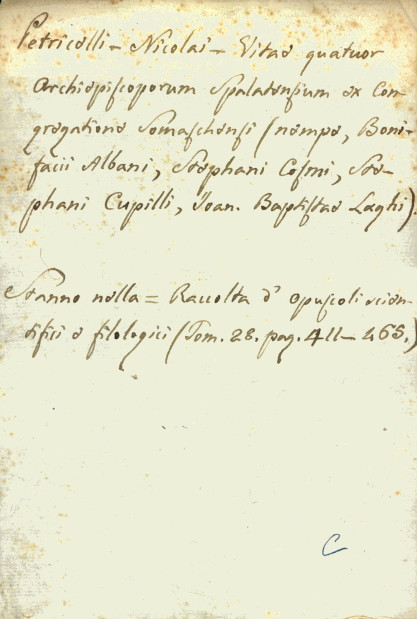 Petricelli - Nicolai - Vitae quatuor
Archiepiscoporum Spalatensium ex Con-
gregatione Somaschensi (nempe, Boni-
facii Albani, Stephani Cosmi, Ste-
phani Cupilli, Ioan. Baptistae Laghi).
Stanno nella = Raccolta d' opuscoli scien-
tifici e filologici (Tom. 28. pag. 411-465.)
C